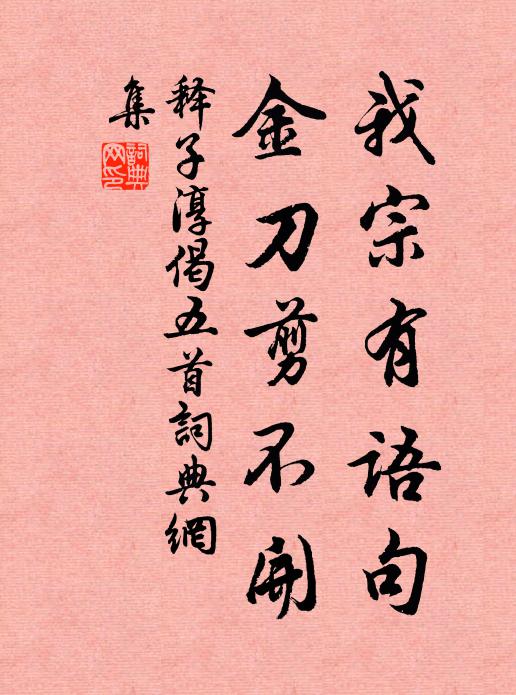 我宗有语句
金刀剪不開
释子淳偈五首詞典網
集
詞典网印